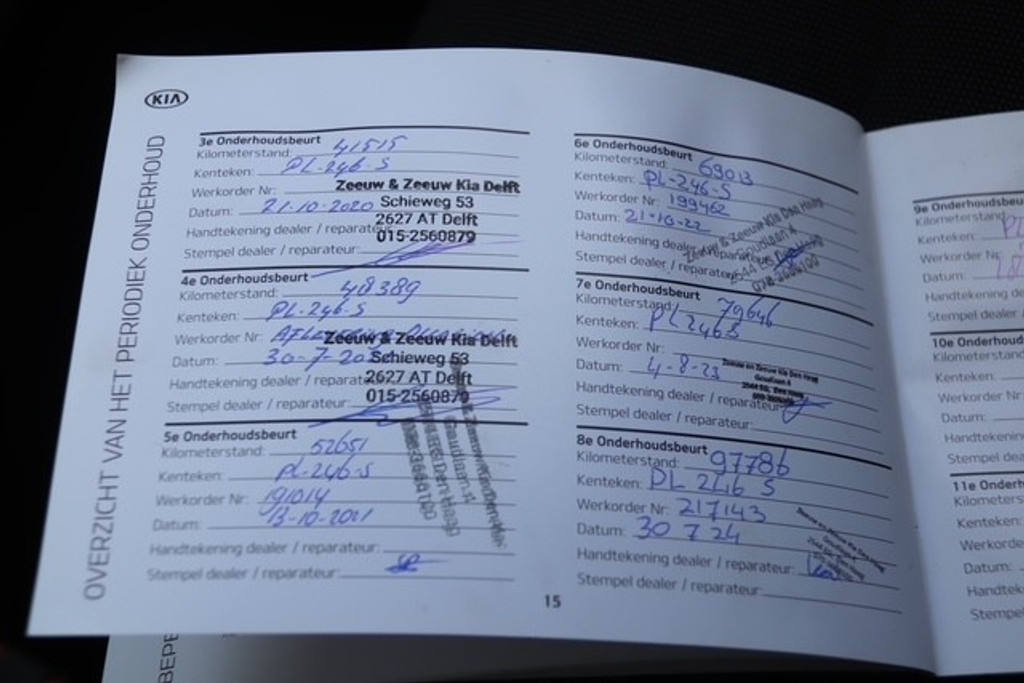 KIA
OVERZICHT VAN HET PERIODIEK ONDERHOUD
3e Onderhoudsbeurt
Kilometerstand: 41515
Kenteken: PL-246-S
Werkorder Nr:
Datum: 21-10-2020
Handtekening dealer / reparateur:
Stempel dealer / reparateur:
Zeeuw & Zeeuw Kia Delft
Schieweg 53
2627 AT Delft
015-2560879
4e Onderhoudsbeurt
Kilometerstand: 48389
Kenteken: PL-246-S
Werkorder Nr:
Datum: 30-7-20
Handtekening dealer / reparateur
Stempel dealer / reparateur:
Zeeuw & Zeeuw Kia Delft
Schieweg 53
2627 AT Delft
015-2560879
5e Onderhoudsbeurt
Kilometerstand: 52651
Kenteken: PL-246-S
Werkorder Nr: 191014
Datum: 13-10-2021
Handtekening dealer / reparateur:
Stempel dealer / reparateur:
6e Onderhoudsbeurt
Kilometerstand: 69013
Kenteken: PL-246-S
Werkorder Nr: 199462
Datum: 21-10-22
Handtekening dealer / reparateur
Stempel dealer / reparateur
Zeeuw & Zeeuw Kia Den Haag
Goudlaan 4
7e Onderhoudsbeurt
Kilometerstand: 79646
Kenteken: PL 246 S
Werkorder Nr:
Datum: 4-8-23
Handtekening dealer / reparateur:
Stempel dealer / reparateur:
Zeeuw en Zeeuw Kia Den Haag
Goudlaan 4
8e Onderhoudsbeurt
Kilometerstand: 97786
Kenteken: PL 246 S
Werkorder Nr: 217143
Datum: 30 7 24
Handtekening dealer / reparateur:
Stempel dealer / reparateur:
15
9e Onderhoudsbeu
Kilometerstand
Kenteken: PL
Werkorder Nr
Datum:
Handtekening de
Stempel dealer
10e Onderhoud
Kilometerstand
Kenteken:
Werkorder N
Datum:
Handtekenin
Stempel dea
11e Onderh
Kilometers
Kenteken:
Werkorde
Datum:
Handtek
Stempel
BEPE